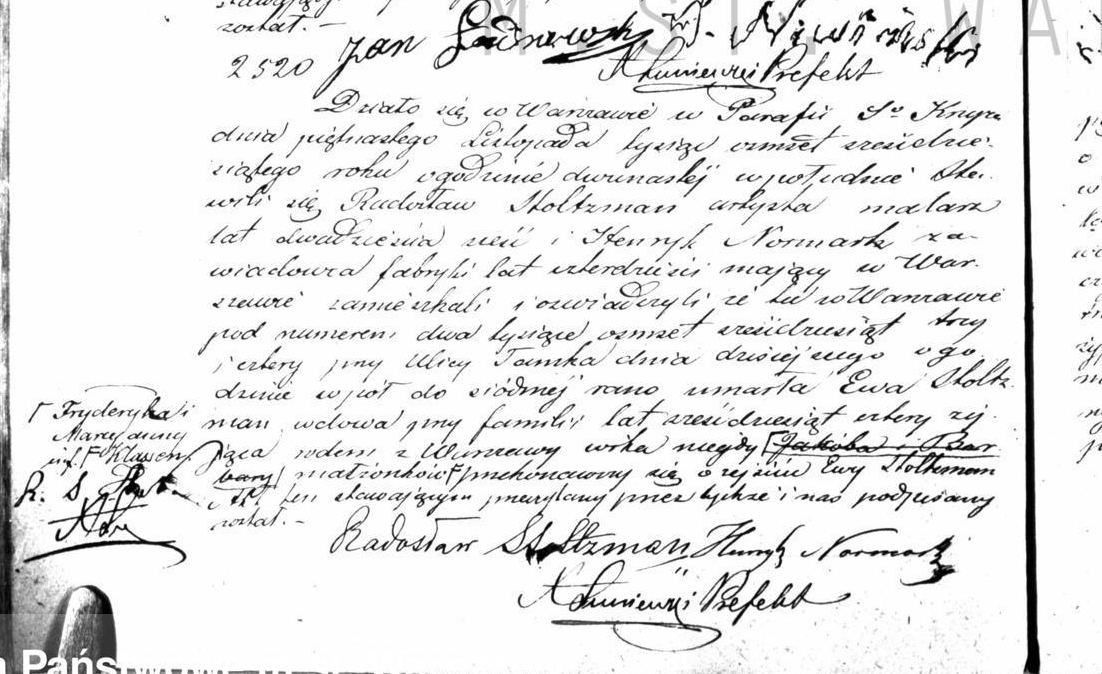 został. -
Jan
2520
Prefekt
Działo się w Warszawie w Parafii Sgo Krzyża
dnia piętnastego Listopada tysiąc osmset sześćdzie-
siątego roku o godzinie dwunastej w południe Sta-
wili się Radosław Stoltzman artysta malarz
lat dwadzieścia sześć i Henryk Normark za-
wiadowca fabryki lat czterdzieści mający w War-
szawie zamieszkali i oświadczyli że tu w Warszawie
pod numerem dwa tysiące osmset sześćdziesiąt trzy
i cztery przy Ulicy Tamka dnia dzisiejszego o go
dzinie wpół do siódmej rano umarła Ewa Stoltz-
man wdowa przy familii lat sześćdziesiąt cztery ży-
jąca rodem z Warszawy córka niegdy Jakóba i Bar
bary małżonków przekonawszy się o zejściu Ewy Stoltzman
Akt ten stawającym przeczytany przez tychże i nas podpisany
został. -
Fryderyka i
Maryanny
Radosław Stoltzman Henryk Normark
Prefekt
Państwowe